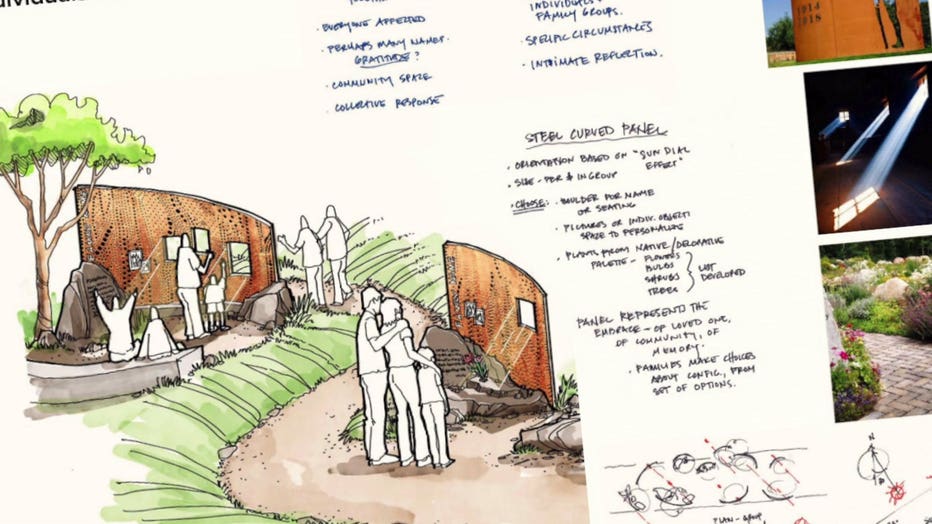 EVERYONE AFFECTED
PERHAPS MANY NAMES.
GRATITUDE?
COMMUNITY SPACE
COLLECTIVE RESPONSE
INDIVIDUALS
FAMILY GROUPS.
SPECIFIC CIRCUMSTANCES
INTIMATE REFLECTION.
1914
1918
STEEL CURVED PANEL
ORIENTATION BASED ON "SUN DIAL
EFFECT"
SIZE - PER # IN GROUP
CHOOSE: BOULDER FOR NAME
OR SEATING
PICTURES OR INDIV. OBJECTS
SPACE TO PERSONALIZE
PLANTS FROM NATIVE/DECORATIVE
PALETTE - FLOWERS
BULBS
SHRUBS
TREES
LIST
DEVELOPED
PANEL REPRESENTS THE
EMBRACE - OF LOVED ONE,
OF COMMUNITY, OF
MEMORY.
FAMILIES MAKE CHOICES
ABOUT CONFIG., FROM
SET OF OPTIONS.
N
PLAN - GROUP